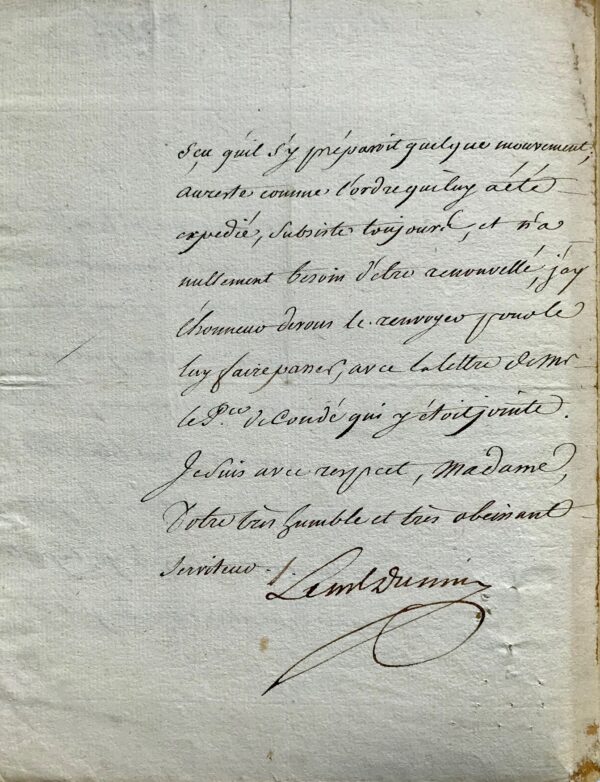 sçu qu'il s'y préparoit quelque mouvement;
au reste comme l'ordre qui luy a été
expedié, subsiste toujours, et n'a
nullement besoin d'être renouvellé, j'ay
l'honneur de vous le renvoyer pour le
luy faire passer, avec la lettre de Mr
le P.ce de Condé qui y étoit jointe.
Je suis avec respect, Madame,
Votre très humble et très obeissant
serviteur